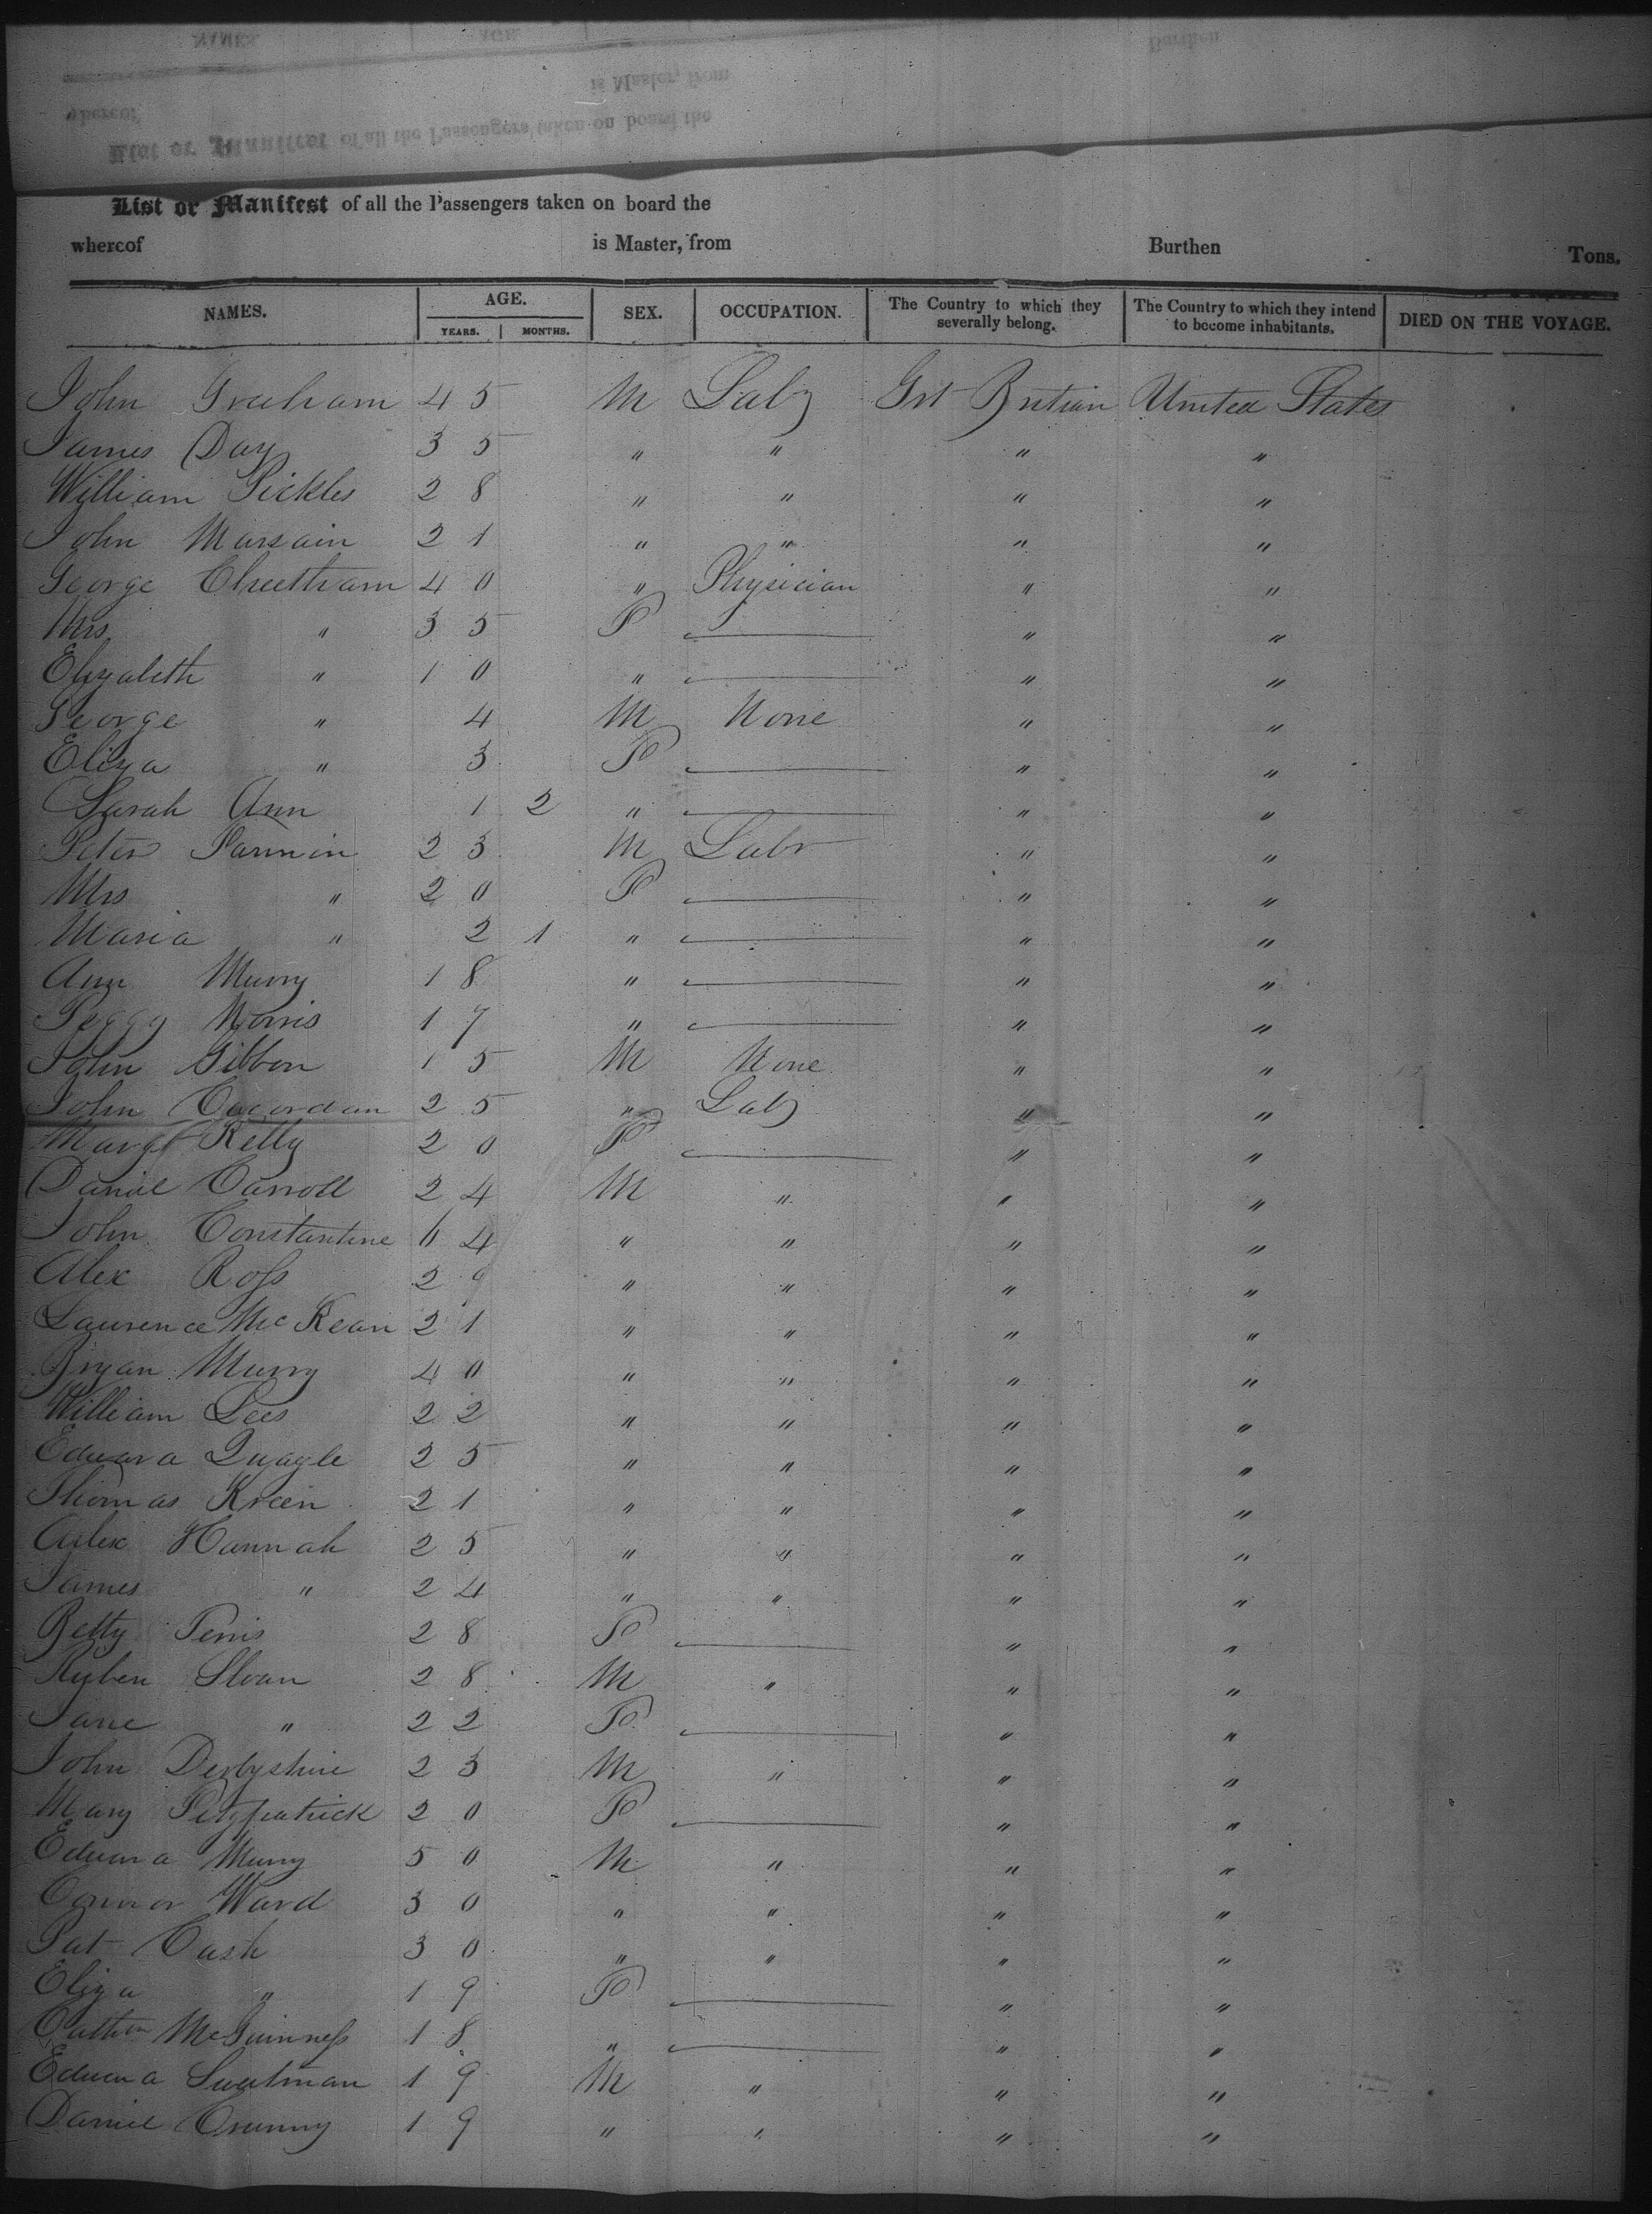 List or Manifest of all the Passengers taken on board the
whereof is Master, from Burthen Tons.
NAMES. AGE. YEARS. MONTHS. SEX. OCCUPATION. The Country to which they severally belong. The Country to which they intend to become inhabitants. DIED ON THE VOYAGE.
John Graham 45 M Labr Grt Britian United States
James Day 35 " " " "
William Pickles 28 " " " "
John Marsain 21 " " " "
George Cheetham 40 " Physician " "
Mrs " 35 F " "
Elizabeth " 10 " " "
George " 4 M None " "
Eliza " 3 F " "
Sarah Ann 1 2 " " "
Peter 23 M Labr " "
Mrs " 20 F " "
Maria " 2 1 " " "
Ann Murry 18 " " "
Peggy Norris 17 " " "
John Gibbon 15 M None " "
John 25 " Labr " "
Margt Kelly 20 F " "
Daniel Carroll 24 M " " "
John Constantine 64 " " " "
Alex Ross 29 " " " "
Laurence McKean 21 " " " "
Bryan Murry 40 " " " "
William Lees 22 " " " "
Edward Quayle 25 " " " "
Thomas Kreen 21 " " " "
Alex Hannah 25 " " " "
James " 24 " " " "
Betty 28 F " "
Ryben Sloan 28 M " " "
Jane " 22 F " "
John Derbyshire 23 M " " "
Mary Fitzpatrick 20 F " "
Edward Murry 50 M " " "
Connor Ward 30 " " " "
Pat Cash 30 " " " "
Eliza " 19 F " "
Cathn McGuinness 18 " " "
Edward Sweetman 19 M " " "
Daniel Crunny 19 " " " "